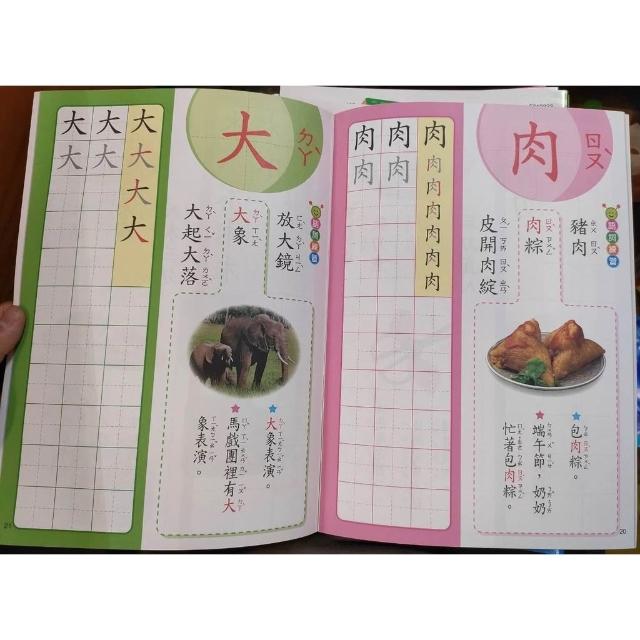 肉
ㄖㄡˋ
語詞練習
豬肉
肉粽
皮開肉綻
包肉粽。
端午節，奶奶
忙著包肉粽。
肉肉肉肉肉肉肉
肉肉
肉肉
20
大
ㄉㄚˋ
語詞練習
放大鏡
大象
大起大落
大象表演。
馬戲團裡有大
象表演。
大大大大
大大
大大
21